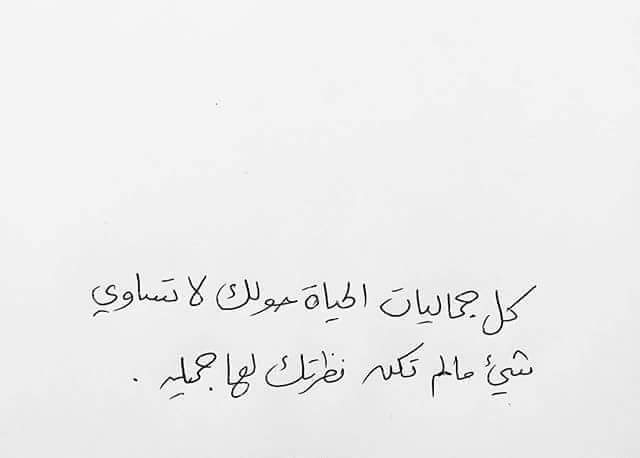 كل جماليات الحياة حولك لا تساوي
شيئ مالم تكن نظرتك لها جميله .